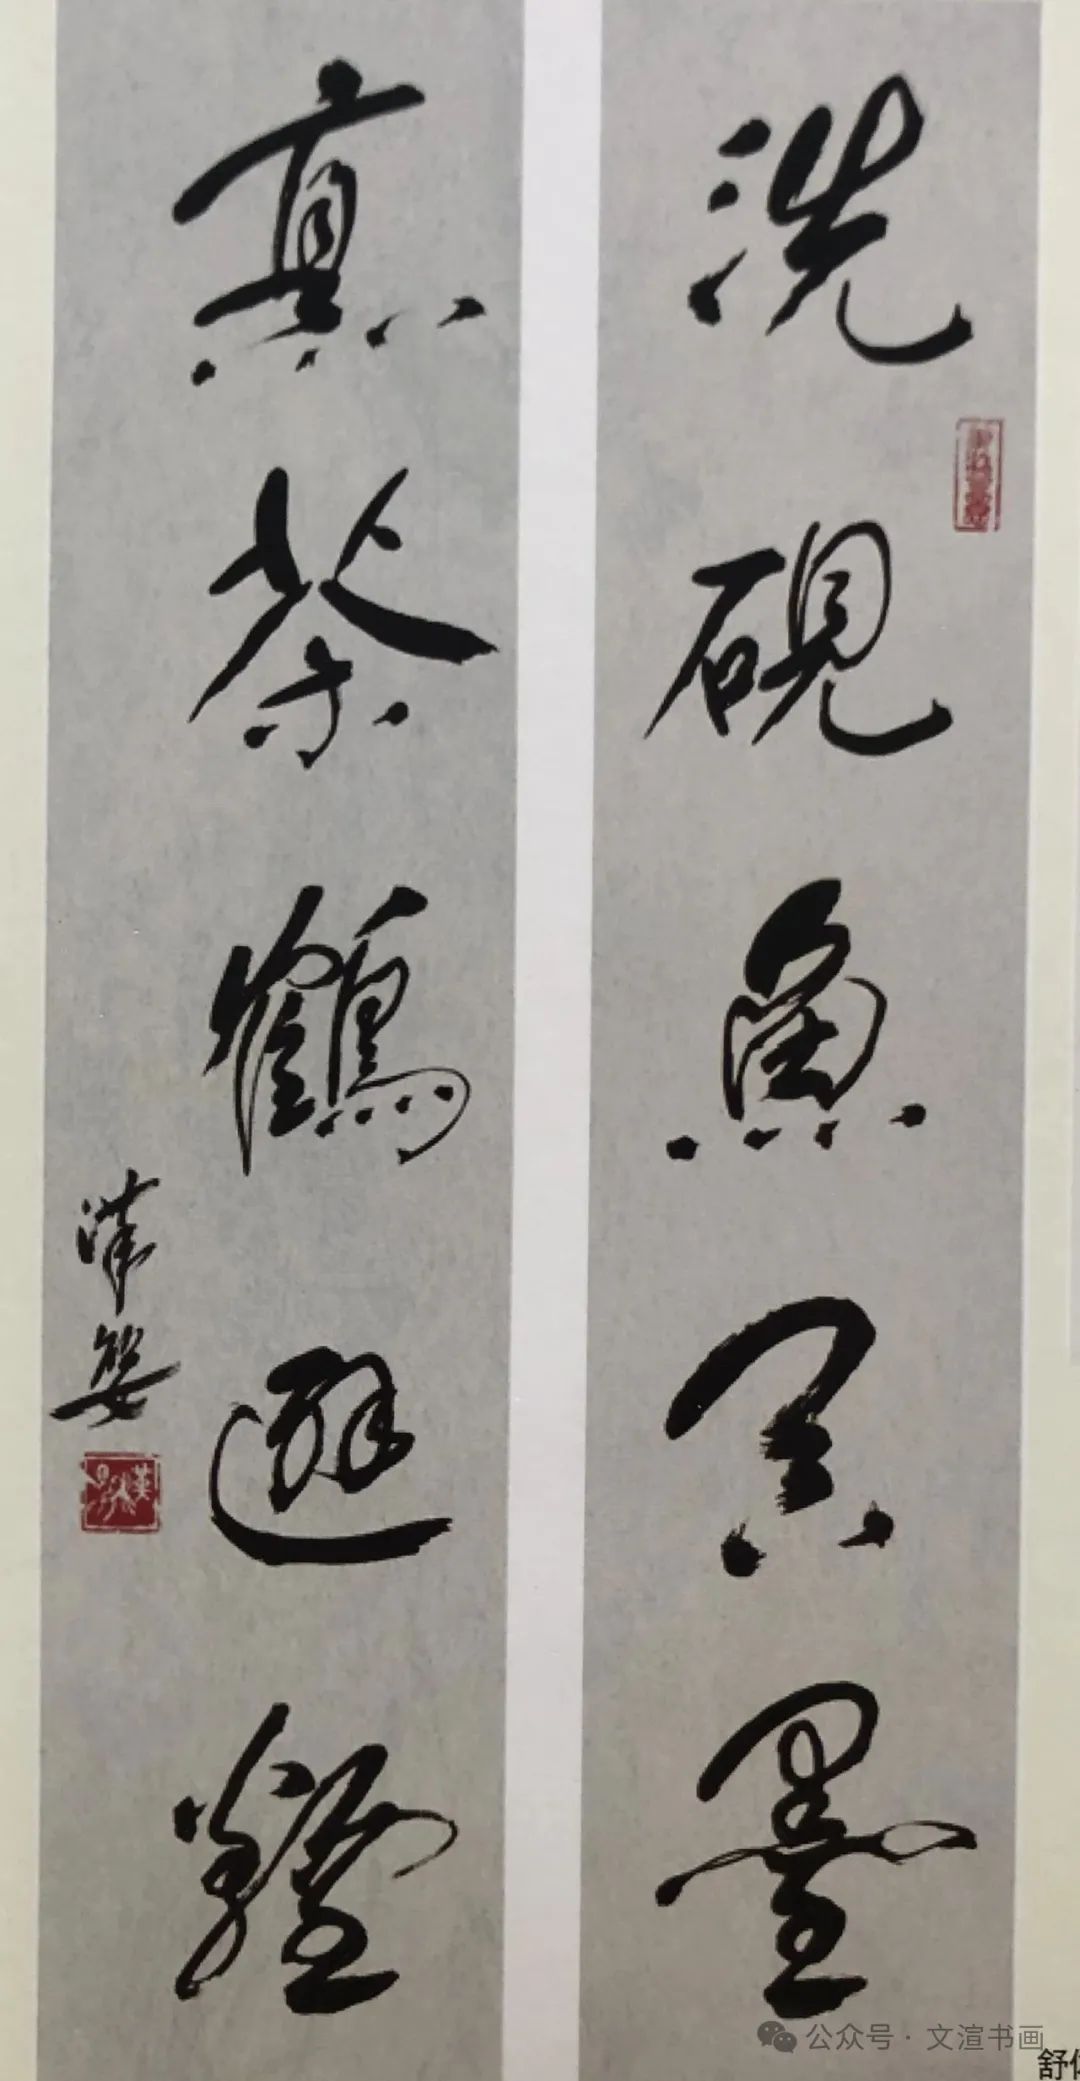 洗硯魚吞墨
烹茶鶴避煙
公众号 · 文渲书画
舒